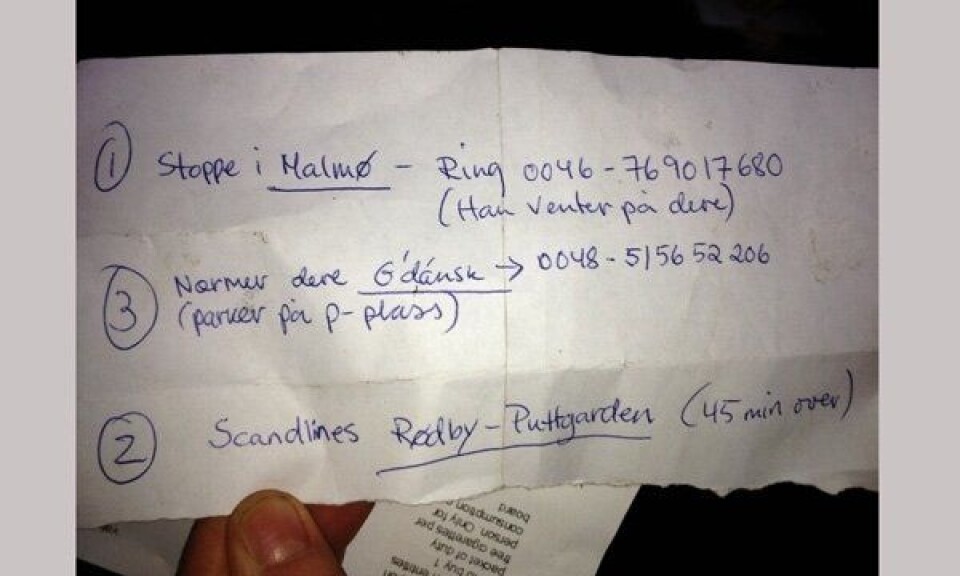 ① Stoppe i Malmø – Ring 0046-769017680
(Han venter på dere)
③ Nærmer dere Gdánsk → 0048-515652206
(parker på p-plass)
② Scandlines Rødby-Puttgarden (45 min over)
board
consumption
person. Only for
free cigarettes per
packet of duty
to buy 1
entities